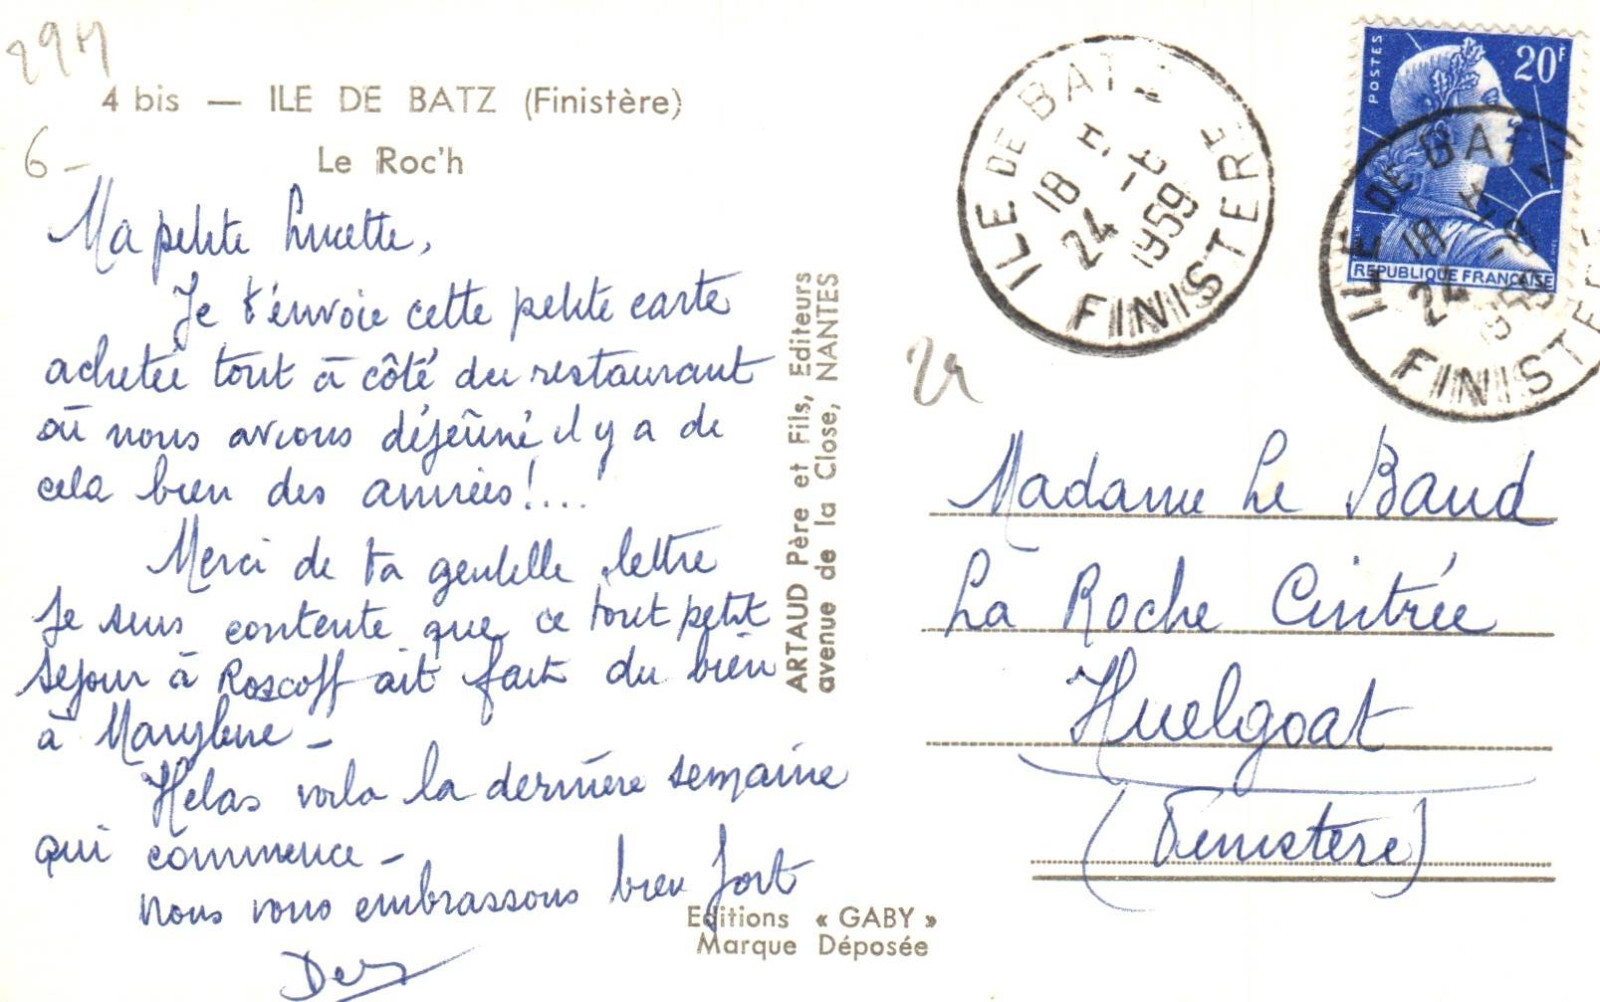 29N
4 bis — ILE DE BATZ (Finistère)
6-
Le Roc'h
Ma petite Lucette,
Je t'envoie cette petite carte
achetée tout à côté du restaurant
où nous avions déjeûné il y a de
cela bien des années!...
Merci de ta gentille lettre
Je suis contente que ce tout petit
séjour à Roscoff ait fait du bien
à Marylene -
Helas voila la dernière semaine
qui commence -
Nous vous embrassons bien fort
ARTAUD Père et Fils, Editeurs
avenue de la Close, NANTES
Editions « GABY »
Marque Déposée
ILE DE BATZ
18 H
24 - 8
1959
FINISTERE
POSTES
20F
REPUBLIQUE FRANÇAISE
ILE DE BAT
18 H
24 - 8
FINISTERE
Madame Le Baud
La Roche Cintrée
Huelgoat
(Finistère)